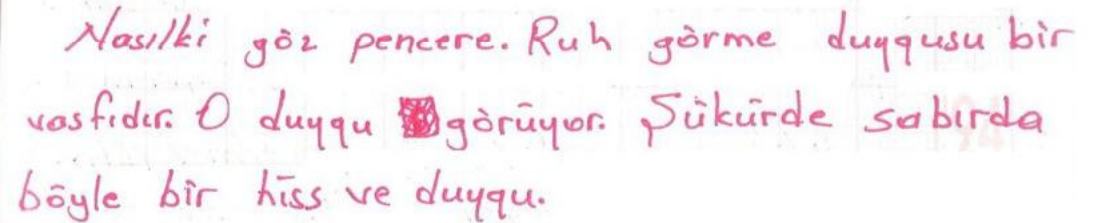 Nasılki göz pencere. Ruh görme duygusu bir
vasfıdır. O duygu görüyor. Şükürde sabırda
böyle bir hiss ve duygu.